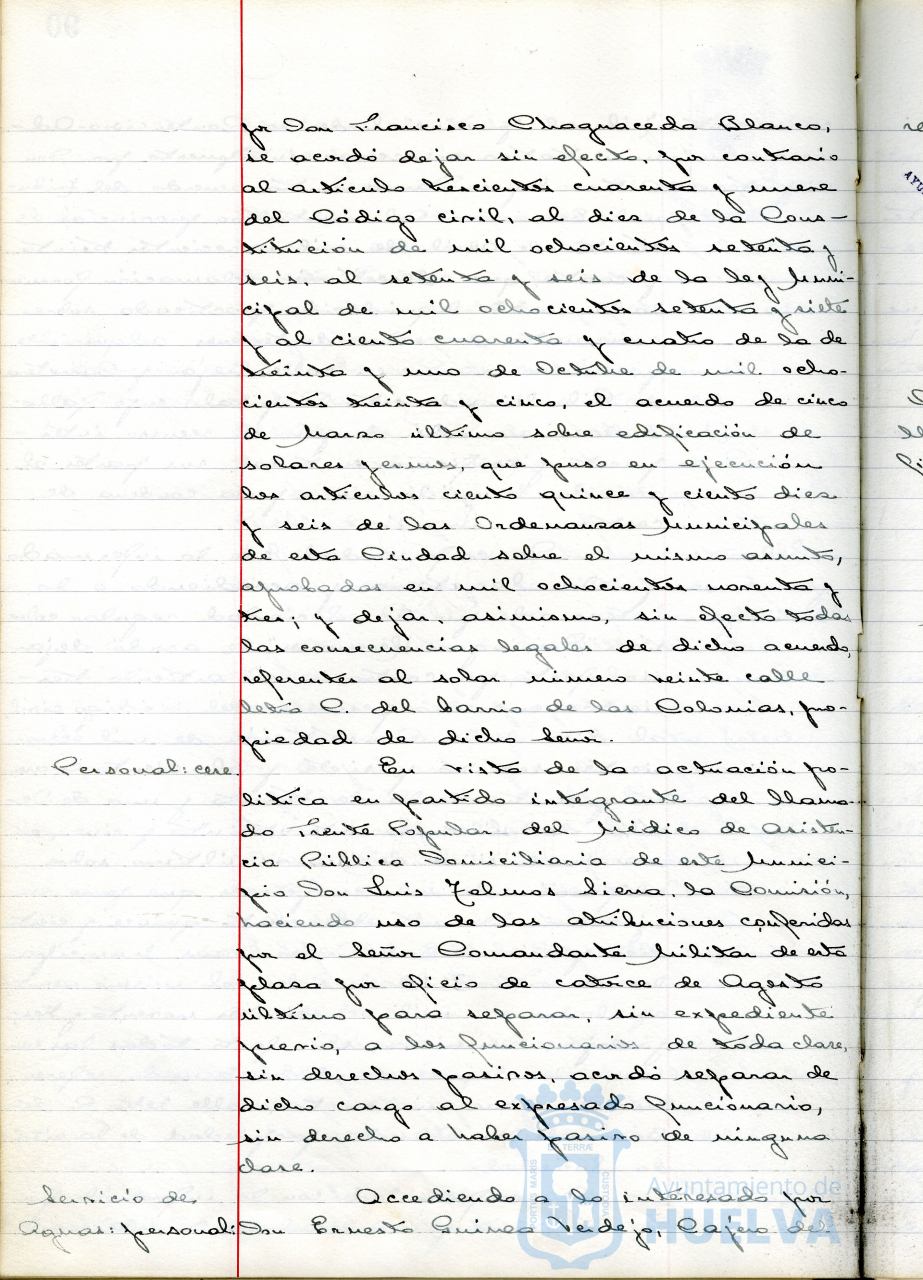 por Don Francisco Chaguaceda Blanco,
se acordó dejar sin efecto, por contrario
al artículo trescientos cuarenta y nueve
del Código civil, al diez de la Cons-
titución de mil ochocientos setenta y
seis, al setenta y seis de la ley Muni-
cipal de mil ochocientos setenta y siete
y al ciento cuarenta y cuatro de la de
treinta y uno de Octubre de mil ocho-
cientos treinta y cinco, el acuerdo de cinco
de Marzo último sobre edificación de
solares yermos, que puso en ejecución
los artículos ciento quince y ciento diez
y seis de las Ordenanzas Municipales
de esta Ciudad sobre el mismo asunto,
aprobadas en mil ochocientos noventa y
tres; y dejar, asimismo, sin efecto todas
las consecuencias legales de dicho acuerdo,
referentes al solar número veinte calle
letra C. del barrio de las Colonias, pro-
piedad de dicho Señor.
Personal: cese. En vista de la actuación po-
lítica en partido integrante del llama-
do Frente Popular del Médico de Asisten-
cia Pública Domiciliaria de este Munici-
pio Don Luis Zelmos Sierra, la Comisión,
haciendo uso de las atribuciones conferidas
por el Señor Comandante Militar de esta
plaza por oficio de catorce de Agosto
último para separar, sin expediente
previo, a los funcionarios de toda clase,
sin derechos pasivos, acordó separar de
dicho cargo al expresado funcionario,
sin derecho a haber pasivo de ninguna
clase.
Servicio de Accediendo a lo interesado por
Aguas: personal: Don Ernesto Guinea Verdejo, Cajero del
Ayuntamiento de
HUELVA